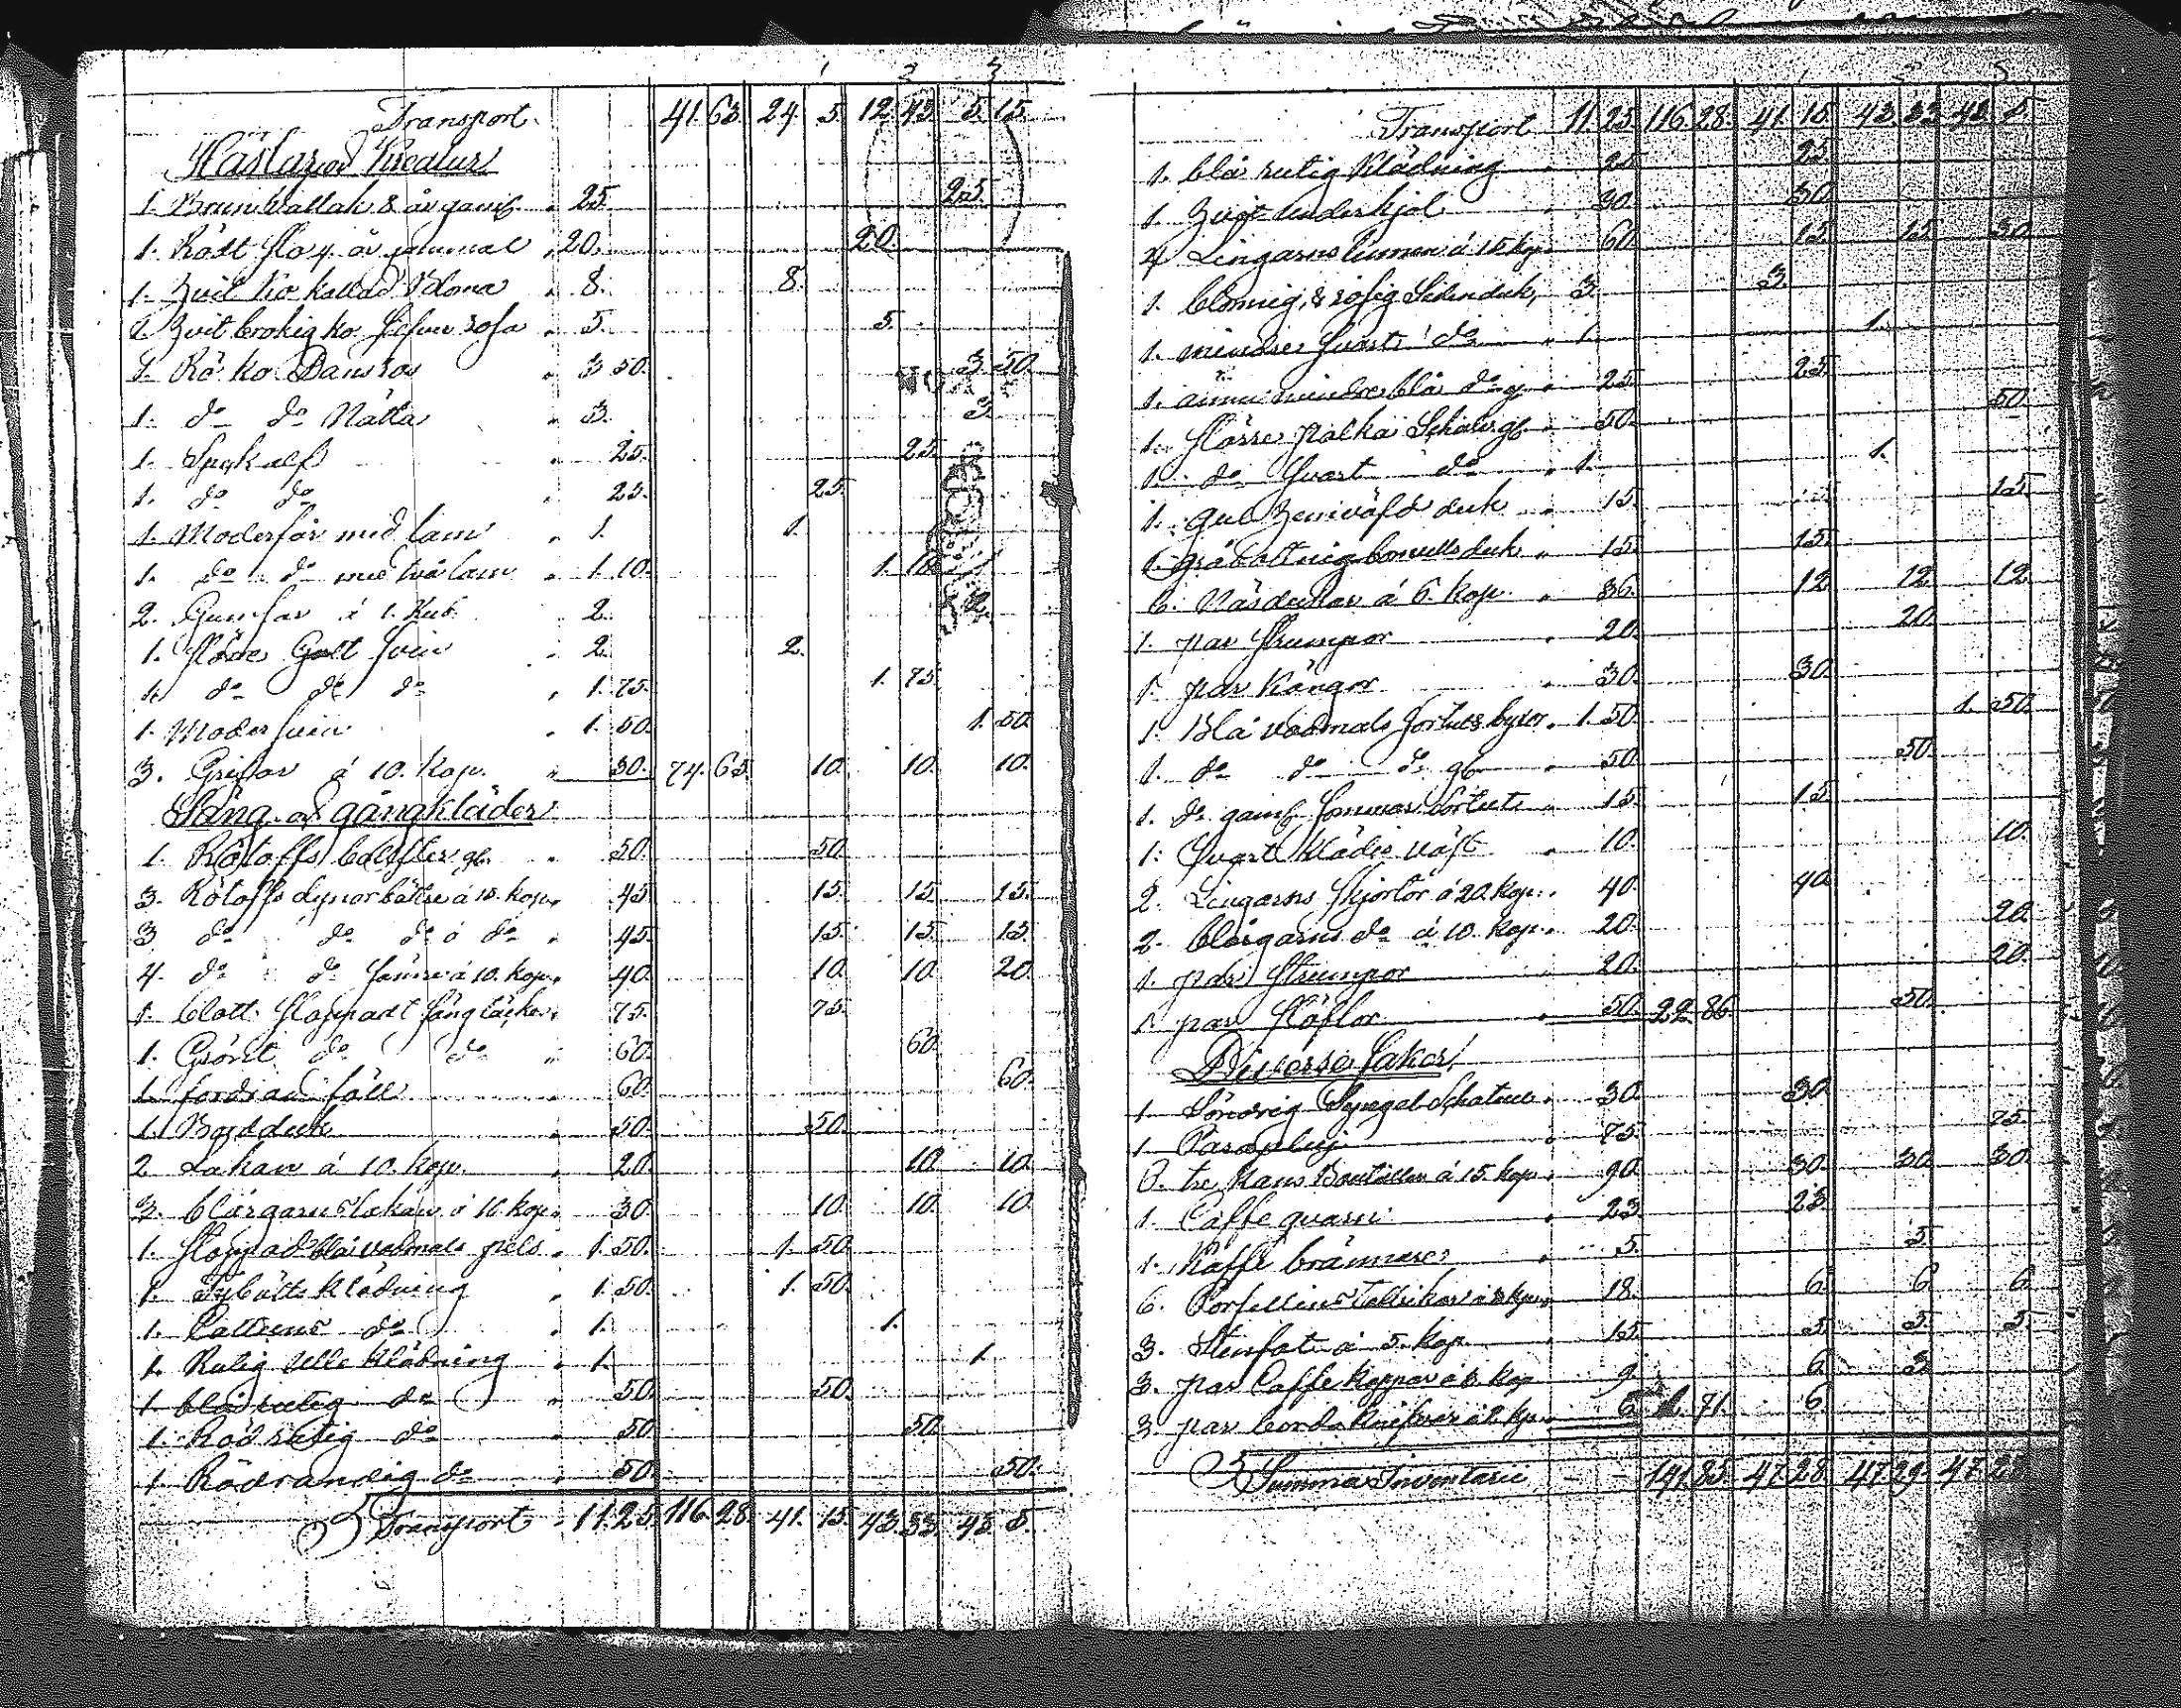 1 2 3
Transport 41. 63. 24. 5. 12. 43. 5. 15.
Hästar och Kreatur
1. Brun Vallak 8 år gaml. " 25. 25.
1. Rödt Sto 4 år gammal " 20. 20.
1. Hvit Ko kallad Bloma " 8. 8.
1. Hvit brokig ko rosa " 5. 5.
1. Rö ko Dansros " 3 50. 3 50.
1. do do Nätta " 3. 3.
1. Spekalf " 25. 25.
1. do do " 25. 25.
1. Moderfår med lam " 1. 1.
1. do do med två lam " 1. 10. 1. 10.
2. Gumfar á 1. Rub. 2. 2.
1. Större Galt svin " 2. 2.
1. do do do " 1. 75. 1. 75.
1. Modersvin " 1. 50. 1. 50.
3. Grisar á 10. Kop. " 30. 74. 63. 10. 10. 10.
Säng och gångkläder
1. Rötoffs bolster gl. " 50. 50.
3. Rötoffs dynor bättre á 15. kop. " 45. 15. 15. 15.
3 do do do á do " 45. 15. 15. 15.
4. do do sämre á 10. kop. " 40. 10. 10. 20.
1. blått stoppadt sängtäcke " 75. 75.
1. Grönt do do " 60. 60.
1. fordrad fäll 60. 60.
1. Bordduk " 50. 50.
2 Lakan á 10. kop. " 20. 10. 10.
3. blårgarns lakan á 10 kop. " 30. 10. 10. 10.
1. Stoppad blå vadmals pels " 1. 50. 1. 50.
1. Tybätts klädning " 1. 50. 1. 50.
1. Cattuns do " 1. 1.
1. Rutig ulle klädning " 1. 1.
1 blå rutig do " 50. 50.
1. Röd rutig do " 50. 50.
1 Rödrandig do " 50. 50.
Transport " 11. 25. 116. 28. 41. 15. 43. 33. 43. 5.
1 2 3
Transport 11. 25. 116. 28. 41. 15. 43. 33. 43. 5.
1. blå rutig Klädning " 25. 25.
1 Hvit underkjol " 30. 30.
4 Lingarns á 15 kop. 60. 15. 15. 30.
1. blomig, & rosig Silkenduk, " 3. 3.
1. mindre svart do " 1. 1.
1. ännu mindre blå do gl " 25. 25.
1. Större Schal gl. " 50. 50.
1. do svart do " 1. 1.
1. gul hemväfd duk " 15. 15.
1. gråbottnig bomulls duk " 15. 15.
6. Näsdukar á 6. kop. " 36. 12. 12. 12.
1. par Strumpor " 20. 20.
1. par Kängor " 30. 30.
1. Blå vadmals " 1. 50. 1. 50.
1. do do do gl " 50. 50.
1. do gaml. sommar " 15. 15.
1. Svart klädes väst " 10. 10.
2. Lingarns skjortor á 20. kop. " 40. 40.
2. blårgarns do á 10. kop. " 20. 20.
1. par Strumpor " 20. 20.
1 par Stöflor " 50. 22. 86. 50.
Diverse saker
1 Söndrig Spegel " 30. 30.
1 Parapluj " 75. 75.
6. tre kans Boutäller á 15. kop " 90. 30. 30. 30.
1. Caffe qvarn " 23. 23.
1. Kaffe brännare " 5. 5.
6. Porsellins Tallrikar á 3 kop. " 18. 6. 6. 6.
3. Stenfat á 5. kop. " 15. 5. 5. 5.
3. par Caffe koppar á 3. kop " 9. 6. 3.
3. par bords knifvar á 2 kp. " 6. 2. 71. 6.
Summa Inventarii 141. 85. 47. 28. 47. 29. 47. 28.